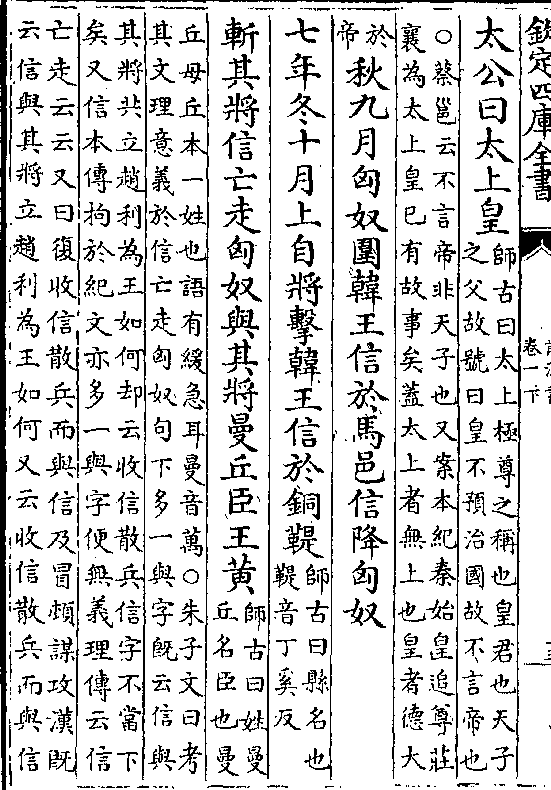 欽定四庫全書
卷一下
太公曰太上皇
師古曰太上極尊之稱也皇君也天子
之父故號曰皇不預治國故不言帝也
○蔡邕云不言帝非天子也又案本紀秦始皇追尊莊
襄為太上皇已有故事矣蓋太上者無上也皇者德大
於
帝
秋九月匈奴圍韓王信於馬邑信降匈奴
七年冬十月上自將擊韓王信於銅鞮
師古曰縣名也
鞮音丁奚反
斬其將信亡走匈奴與其將曼丘臣王黃
師古曰姓曼
丘名臣也曼
丘毋丘本一姓也語有緩急耳曼音萬○朱子文曰考
其文理意義於信亡走匈奴句下多一與字既云信與
其將共立趙利為王如何却云收信散兵信字不當下
矣又信本傳拘於紀文亦多一與字便無義理傳云信
亡走云云又曰復收信散兵而與信及冒頓謀攻漢既
云信與其將立趙利為王如何又云收信散兵而與信